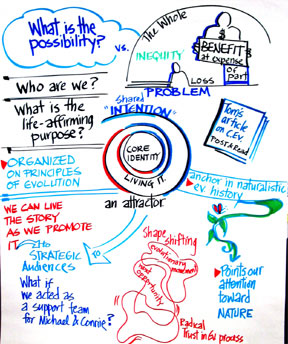 What is the
possibility?
vs.
The Whole
INEQUITY
BENEFIT
at expense
of
part
LOSS
PROBLEM
Who are we?
What is the
life-affirming
purpose?
Shared
"INTENTION"
Tom's
article
on C.Ev
POST & Read
CORE
IDENTITY
LIVING IT.
an attractor
ORGANIZED
ON PRINCIPLES
OF EVOLUTION
WE CAN LIVE
THE STORY
AS WE PROMOTE
IT
to
STRATEGIC
AUDIENCES
What if
we acted
as a
support team
for
Michael & Connie?
anchor in naturalistic,
ev. history
Shape
shifting
evolutionary movement
next
opportunity
Radical
Trust in Ev process
Points our
attention
toward
NATURE